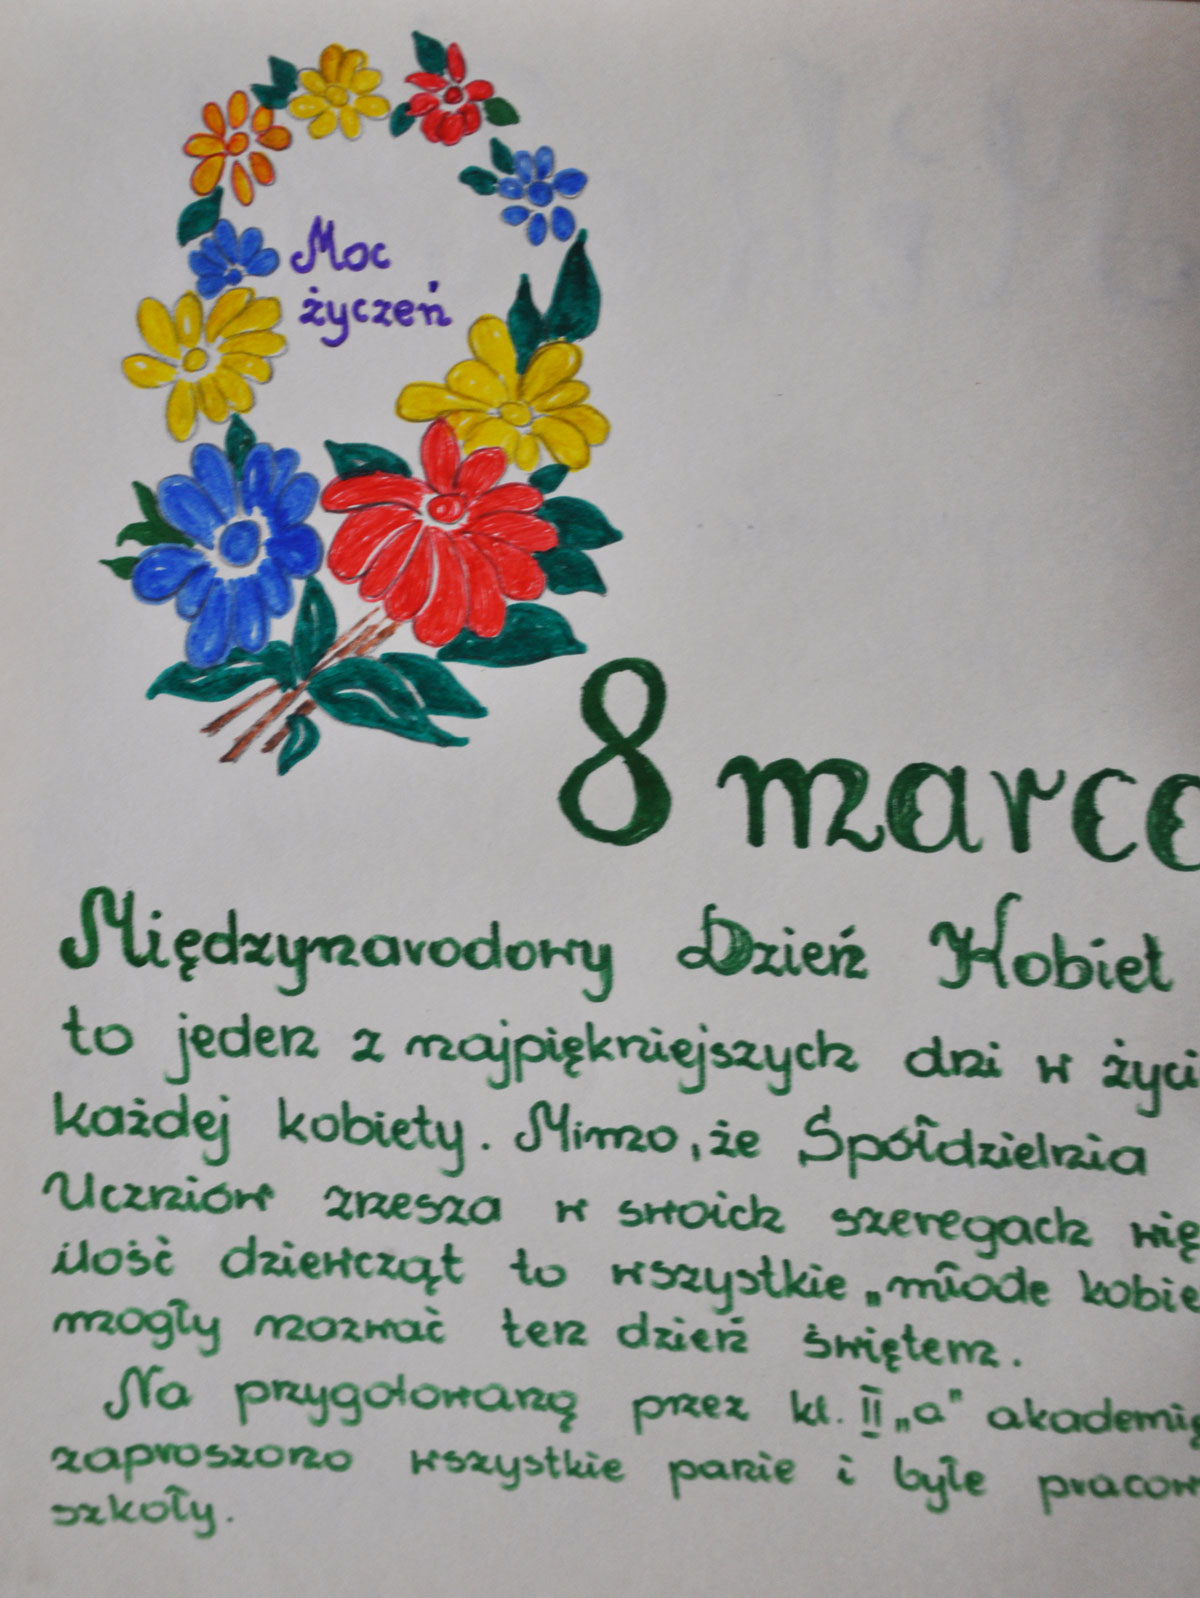 Moc
życzeń
8 marca
Międzynarodowy Dzień Kobiet
to jeden z najpiękniejszych dni w życi
każdej kobiety. Mimo, że Spółdzielnia
Uczniów zrzesza w swoich szeregach wię
ilość dziewcząt to wszystkie „młode kobie
mogły nazwać ten dzień świętem.
Na przygotowaną przez kl. II „a" akademię
zaproszono wszystkie panie i byłe pracow
szkoły.